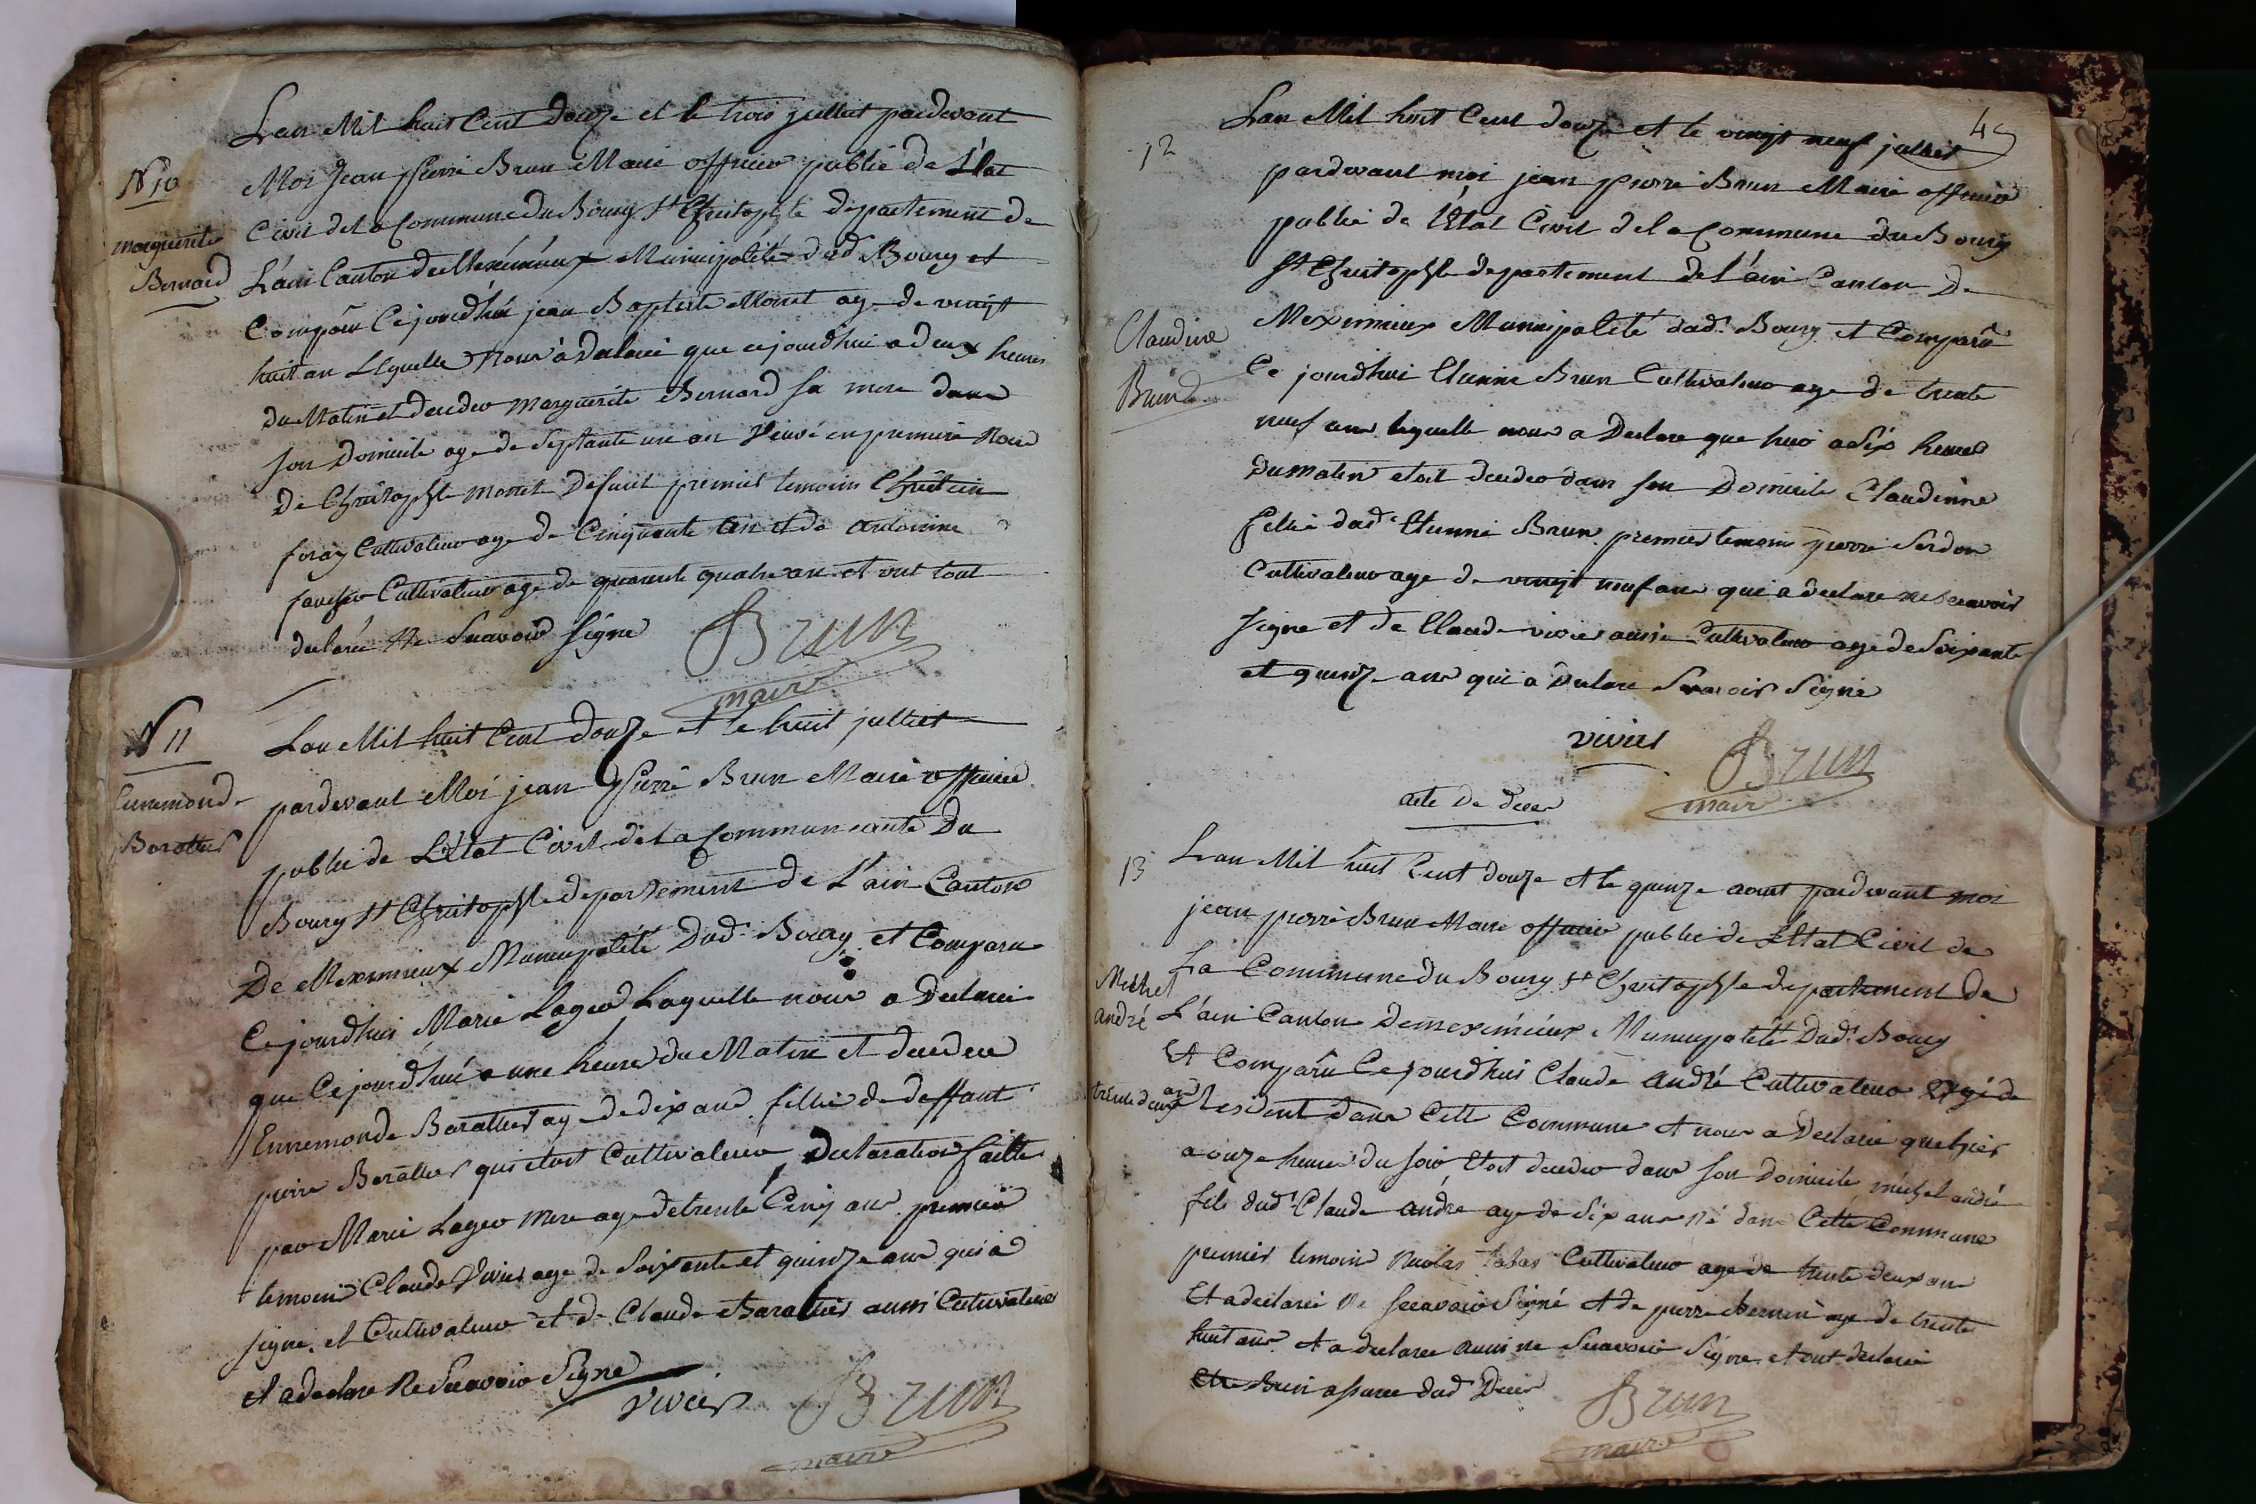 Lan Mil huit Cent douze et le trois juillet pardevant
N 10
Moi Jean Pierre Brun Maire officier public de L'Etat
Civil de La Commune du Bourg St Christophle departement de
marguerite
Bernard
L'ain Canton de Meximieux Municipalité dud Bourg et
Comparu Cejourdhui jean Baptiste Monet age de vingt
huit an Lequelle Nous à declaré que cejourdhui a deux heures
du Matin et decedeo marguerite Bernard sa mere dans
son domicile age de septante un an Veuve en premiere Noce
de Christophle monet Defunt premier temoin
foray Cultivateur age de Cinquante an et de antoinne
Cultivateur age de quarente quatre an et ont tout
declaré Ne Scavoir signé
Brun
maire
N 11
Lan Mil huit Cent douze et le huit julliet
Ennemonde
Baratier
pardevant Moi jean Pierre Brun Maire officier
public de L'état Civil de La Commune Du
Bourg St Christophle departement de L'ain Canton
De Meximieux Municipalité Dud. Bourg et Comparu
Cejourdhui Marie Lager Laquelle nous a Declaré
que Cejourdhui a une heure du Matin et decedeo
Ennemonde Baratier age de dix ans fillie de deffunt
pierre Baratier qui etoit Cultivateur, declaration faitte
par Marie Lager mere age de trente Cinq ans premier
temoin Claude Vivier age de soixante et quinze ans qui a
signe, et Cultivateur et de Claude Baratier aussi Cultivateur
et a declare Ne Scavoir Signe
vivier Brun
maire
45
Lan Mil huit Cent douze et le vingt neuf julliet
12
pardevant moi jean pierre Brun Maire officier
public de L'Etat Civil de la Commune du Bourg
St Christophle departement de L'ain Canton De
Claudine
Brun
Meximieux Municipalité dud. Bourg et Comparu
Ce jourdhui Etienne Brun Cultivateur age de trente
neuf ans lequelle nous a Declare que hier a six heures
du matin etoit decedeo dans son Domicile Claudinne
fillie dud. Etienne Brun premier temoin pierre Serdon
Cultivateur age de vingt neuf ans qui a declare ne Scavoir
signe et de Claude vivier aussi Cultivateur age de Soixante
et quinze ans qui a declare Scavoir Signé
vivier Brun
maire
acte de deces
13
Lan Mil huit Cent douze et le quinze aout pardevant moi
jean pierre Brun Maire officier public de L'Etat Civil de
La Commune du Bourg St Christophle departement de
Michel
André
L'ain Canton De meximieux Municipalité Dud. Bourg
Et Comparu Cejourdhui Claude André Cultivateur agé de
trente deux ans
Resident dans Cette Commune et nous a Declaré que hier
a onze heures du soir Etoit decedeo dans son domicile michel andré
fils dud. Claude andre age de six ans né dans Cette Commune
premier temoin Nicolas Cultivateur age de trente deux ans
Et a declaré Ne Scavoir Signé et de pierre age de trente
huit ans et a declare aussi ne Scavoir Signe et ont declaré
dud. Deces
Brun
maire